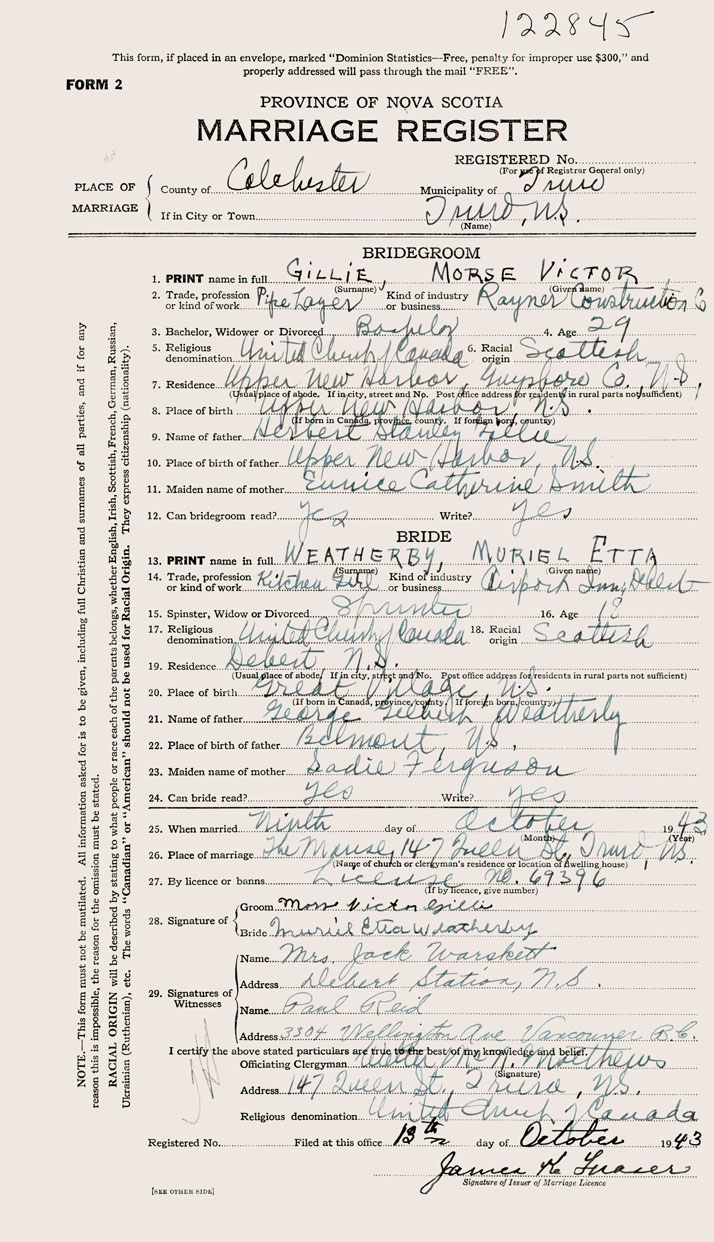 122845
This form, if placed in an envelope, marked "Dominion Statistics—Free, penalty for improper use $300," and
properly addressed will pass through the mail "FREE".
FORM 2
PROVINCE OF NOVA SCOTIA
MARRIAGE REGISTER
REGISTERED No.
(For use of Registrar General only)
PLACE OF MARRIAGE
County of Colchester Municipality of Truro
If in City or Town Truro, N.S.
(Name)
BRIDEGROOM
1. PRINT name in full GILLIE, MORSE VICTOR
(Surname) (Given name)
2. Trade, profession or kind of work Pipe Layer Kind of industry or business Rayner Construction Co
3. Bachelor, Widower or Divorced Bachelor 4. Age 29
5. Religious denomination United Church of Canada 6. Racial origin Scottish
7. Residence Upper New Harbor, Guysboro Co., N.S.
(Usual place of abode. If in city, street and No. Post office address for residents in rural parts not sufficient)
8. Place of birth Upper New Harbor, N.S.
(If born in Canada, province, county. If foreign born, country)
9. Name of father Herbert Stanley Gillie
10. Place of birth of father Upper New Harbor, N.S.
11. Maiden name of mother Eunice Catherine Smith
12. Can bridegroom read? yes Write? yes
BRIDE
13. PRINT name in full WEATHERBY, MURIEL ETTA
(Surname) (Given name)
14. Trade, profession or kind of work Kitchen Girl Kind of industry or business Airport Inn, Debert
15. Spinster, Widow or Divorced Spinster 16. Age 18
17. Religious denomination United Church of Canada 18. Racial origin Scottish
19. Residence Debert, N.S.
(Usual place of abode. If in city, street and No. Post office address for residents in rural parts not sufficient)
20. Place of birth Great Village, N.S.
(If born in Canada, province, county. If foreign born, country)
21. Name of father George Gilbert Weatherby
22. Place of birth of father Belmont, N.S.
23. Maiden name of mother Sadie Ferguson
24. Can bride read? yes Write? yes
25. When married Ninth day of October 1943
(Month) (Year)
26. Place of marriage The Manse, 147 Queen St., Truro, N.S.
(Name of church or clergyman's residence or location of dwelling house)
27. By licence or banns License No. 69396
(If by licence, give number)
28. Signature of
Groom Morse Victor Gillie
Bride Muriel Etta Weatherby
29. Signatures of Witnesses
Name Mrs. Jack Warskett
Address Debert Station, N.S.
Name Paul Reid
Address 3304 Wellington Ave Vancouver B.C.
I certify the above stated particulars are true to the best of my knowledge and belief.
Officiating Clergyman Matthews
(Signature)
Address 147 Queen St., Truro, N.S.
Religious denomination United Church of Canada
Registered No. Filed at this office 13th day of October 1943
James Fraser
Signature of Issuer of Marriage Licence
[SEE OTHER SIDE]
NOTE.—This form must not be mutilated. All information asked for is to be given, including full Christian and surnames of all parties, and if for any
reason this is impossible, the reason for the omission must be stated.
RACIAL ORIGIN will be described by stating to what people or race each of the parents belongs, whether English, Irish, Scottish, French, German, Russian,
Ukrainian (Ruthenian), etc. The words "Canadian" or "American" should not be used for Racial Origin. They express citizenship (nationality).